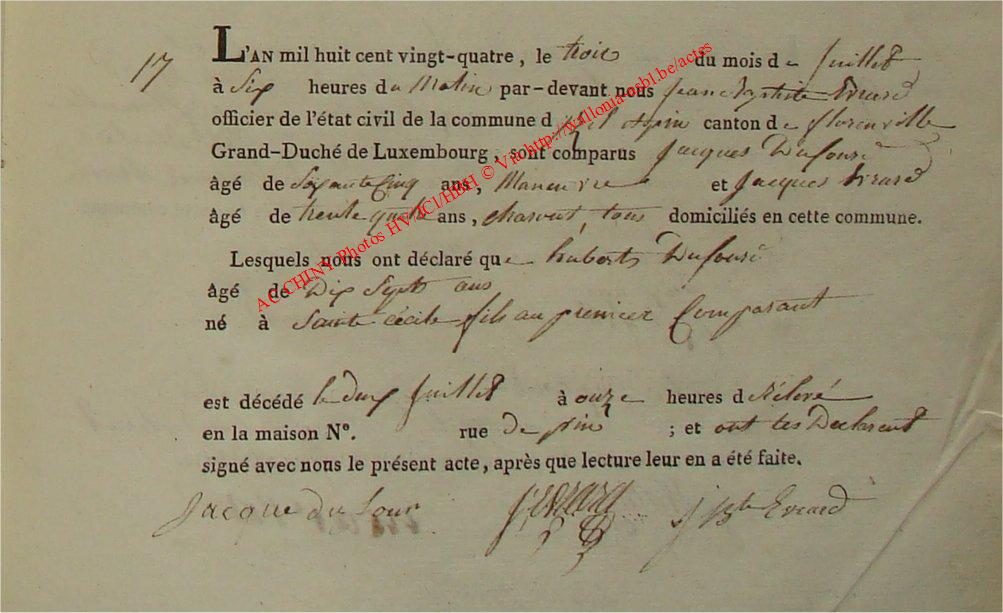 17
L'AN mil huit cent vingt-quatre, le trois du mois de juillet
à Six heures du Matin par-devant nous Jean Baptiste Evrard
officier de l'état civil de la commune d canton de florenville
Grand-Duché de Luxembourg, sont comparus Jacques Dufour
âgé de Soixante Cinq ans, Maneuvre et Jacques Evrard
âgé de trente quatre ans, tous domiciliés en cette commune.
Lesquels nous ont déclaré que huberts Dufour
âgé de Dix Sept ans
né à Sainte cécile fils au premier Comparant
est décédé le deux Juillet à onze heures d
en la maison N°. rue de pin ; et ont les Declarent
signé avec nous le présent acte, après que lecture leur en a été faite.
Jacque du four J Evrard J Bte Evrard
AC CHINY Photos HVACI/HBH © Via http://wallonia-asbl.be/actes